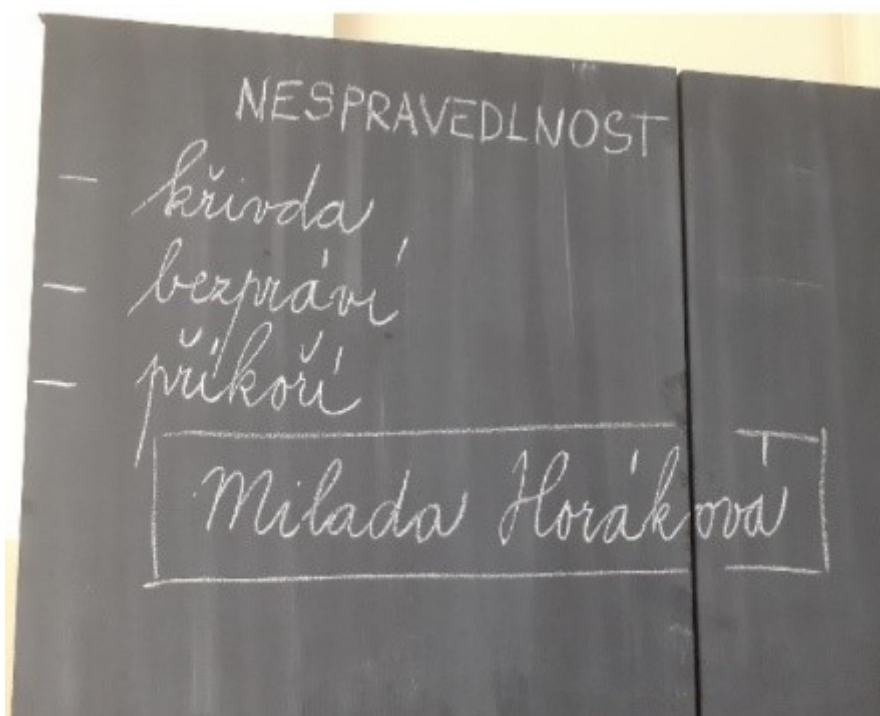 NESPRAVEDLNOST
- křivda
- bezpráví
- příkoří
Milada Horáková